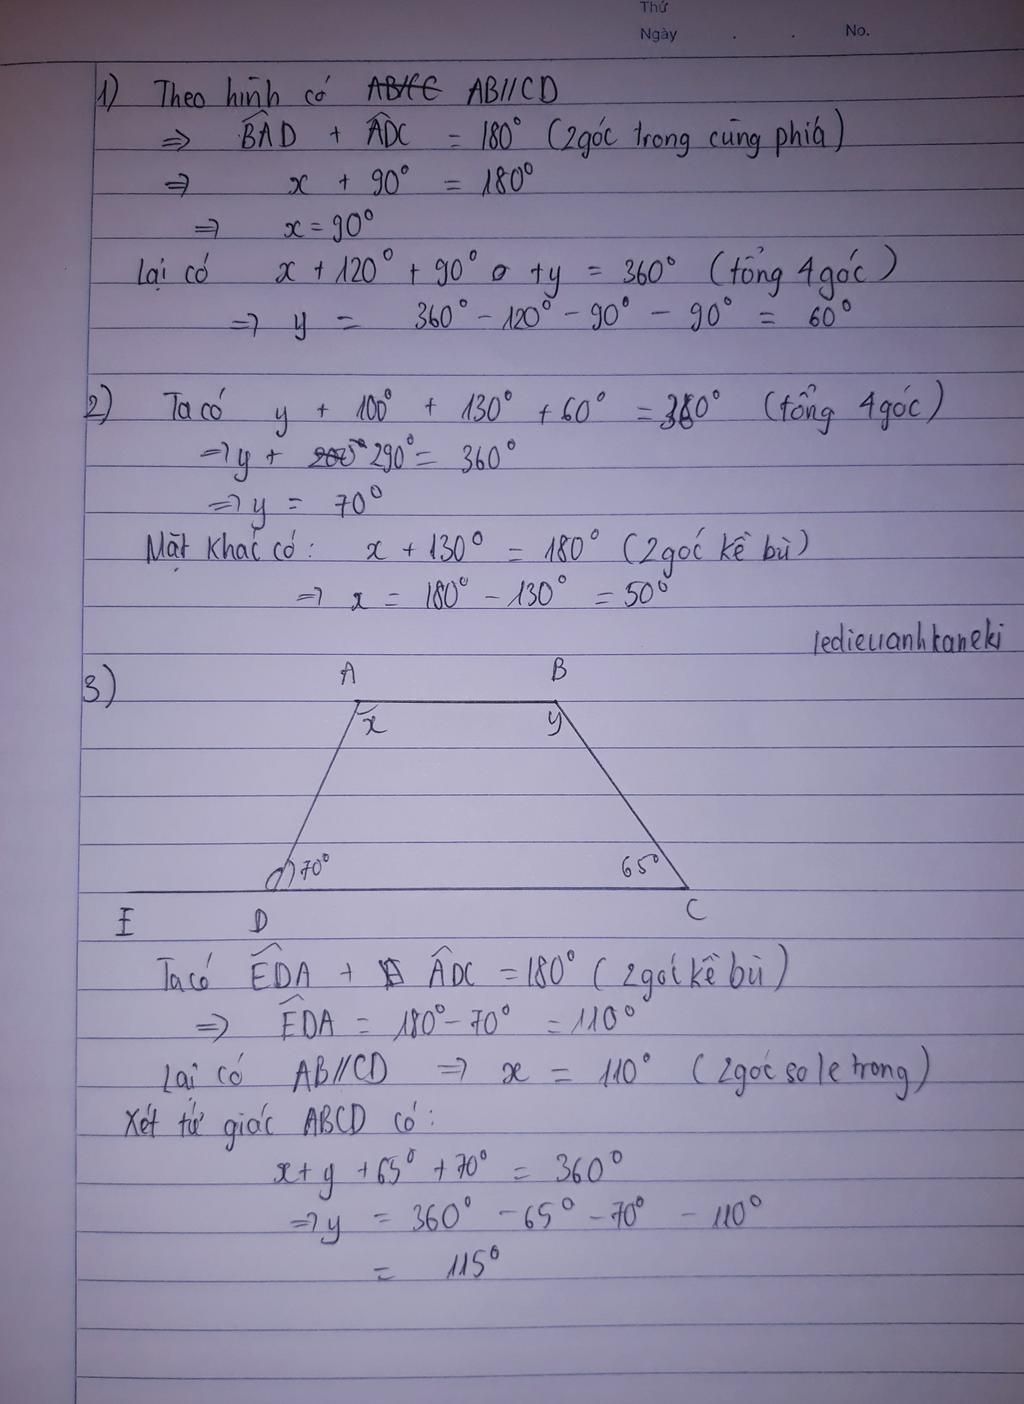 Thứ
Ngày . . No.
1) Theo hình có AB//CD
=> BAD + ADC = 180° (2góc trong cùng phía)
=> x + 90° = 180°
=> x = 90°
Lại có x + 120° + 90° + y = 360° (tổng 4 góc)
=> y = 360° - 120° - 90° - 90° = 60°
2) Ta có y + 100° + 130° + 60° = 360° (tổng 4 góc)
=> y + 290° = 360°
=> y = 70°
Mặt khác có: x + 130° = 180° (2góc kề bù)
=> x = 180° - 130° = 50°
ledieuanhkaneki
3) A B
x y
70° 65°
E D C
Ta có EDA + ADC = 180° (2góc kề bù)
=> EDA = 180° - 70° = 110°
Lại có AB//CD => x = 110° (2góc so le trong)
Xét tứ giác ABCD có:
x + y + 65° + 70° = 360°
=> y = 360° - 65° - 70° - 110°
= 115°